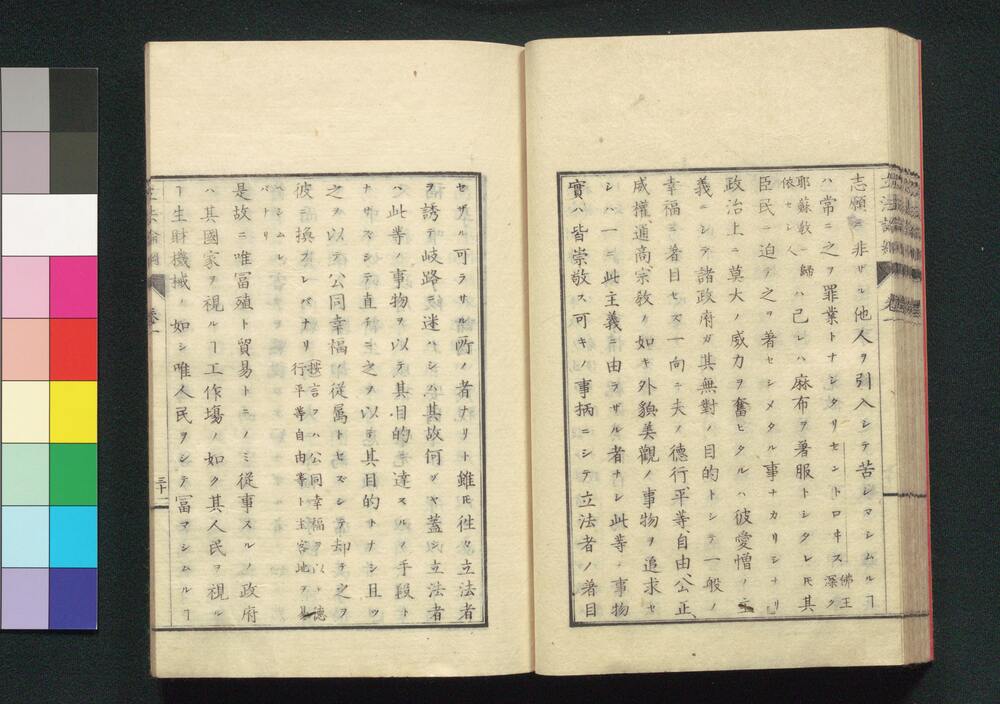 志願ニ非ザル他人ヲ引入シテ苦シマシムルヿ
ハ常ニ之ヲ罪業トナシタリセントロヰス佛王深ク
耶蘇教ニ歸依セシ人ハ己レハ麻布ヲ著服トシタレ𪜈其
臣民ニ迫テ之ヲ著セシメタル事ナカリシナリ
政治上ニ莫大ノ威力ヲ奮ヒタルハ彼愛憎ノ主
義ニシテ諸政府ガ其無對ノ目的トシテ一般ノ
幸福ニ著目セズ一向ニ夫ノ德行、平等自由、公正、
威權、通商、宗敎ノ如キ外貌美觀ノ事物ヲ追求セ
シハ一ニ此主義ニ由ラザル者ナシ此等ノ事物
實ハ皆崇敬ス可キノ事柄ニシテ立法者ノ著目
セザル可ラサル所ノ者ナリト雖𪜈往々立法者
ヲ誘テ岐路ニ迷ハシムハ其故何ゾヤ蓋シ立法者
ハ此等ノ事物ヲ以テ其目的ニ達スルノ手段ト
ナサズシテ直チニ之ヲ以テ其目的トナシ且ツ
之ヲ以テ公同幸福ノ從屬トセズシテ却テ之ヲ
彼ニ換フレバナリ撲言フハ公同幸福ヲ以テ德行平等自由等ト主客地ヲ易
ハシムレバトリ
是故ニ唯冨殖ト貿易トニノミ從事スルノ政府
ハ其國家ヲ視ルヿ工作塲ノ如ク其人民ヲ視ル
ヿ生財機械ノ如シ唯人民ヲシテ冨マシムルヿ
卷一
三十一